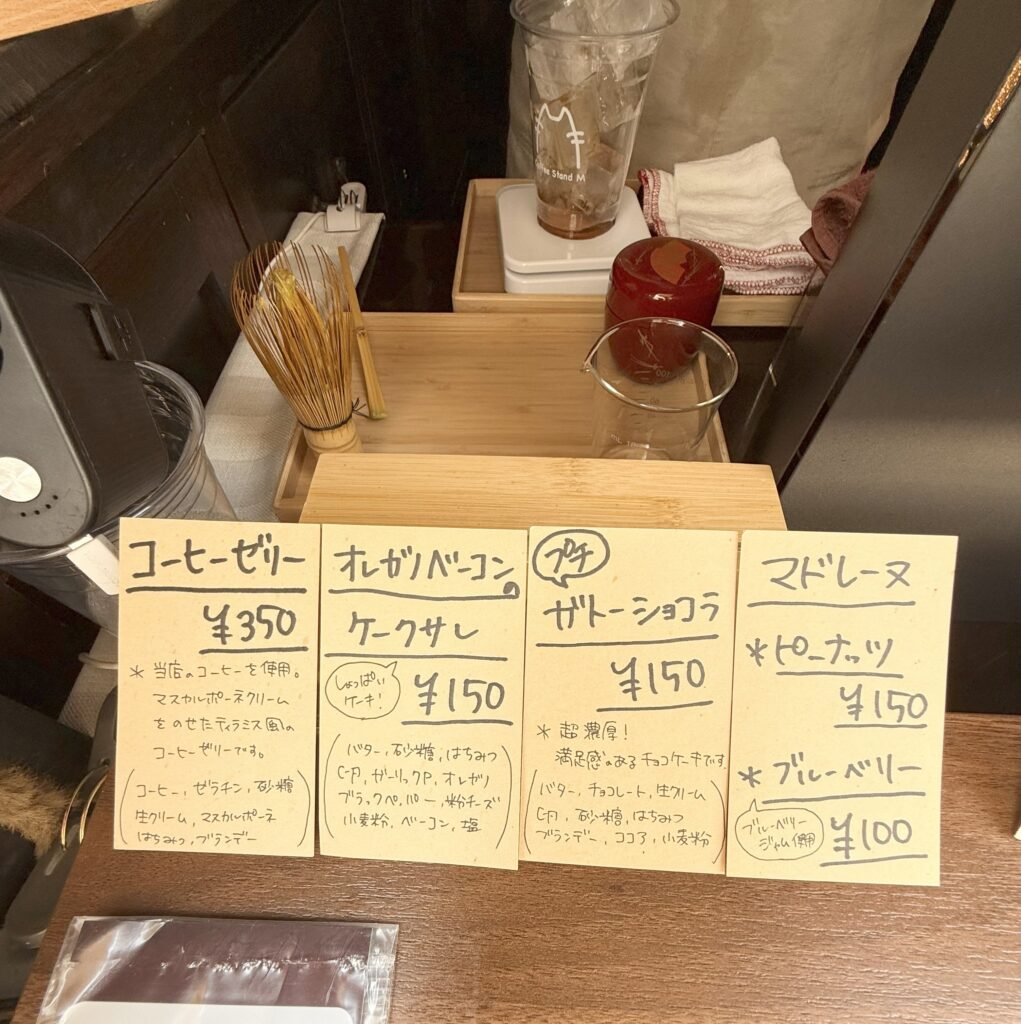 Stand M
コーヒーゼリー
¥350
* 当店のコーヒーを使用。
マスカルポーネクリーム
をのせたティラミス風の
コーヒーゼリーです。
(コーヒー, ゼラチン, 砂糖
生クリーム, マスカルポーネ
はちみつ, ブランデー)
オレガノベーコン
ケークサレ
しょっぱい
ケーキ!
¥150
(バター, 砂糖, はちみつ
ガーリックP, オレガノ
ブラックペパー, 粉チーズ
小麦粉, ベーコン, 塩)
プチ
ガトーショコラ
¥150
* 超濃厚!
満足感のあるチョコケーキです
(バター, チョコレート, 生クリーム
砂糖, はちみつ
ブランデー, ココア, 小麦粉)
マドレーヌ
* ピーナッツ
¥150
* ブルーベリー
ブルーベリー
ジャム使用
¥100